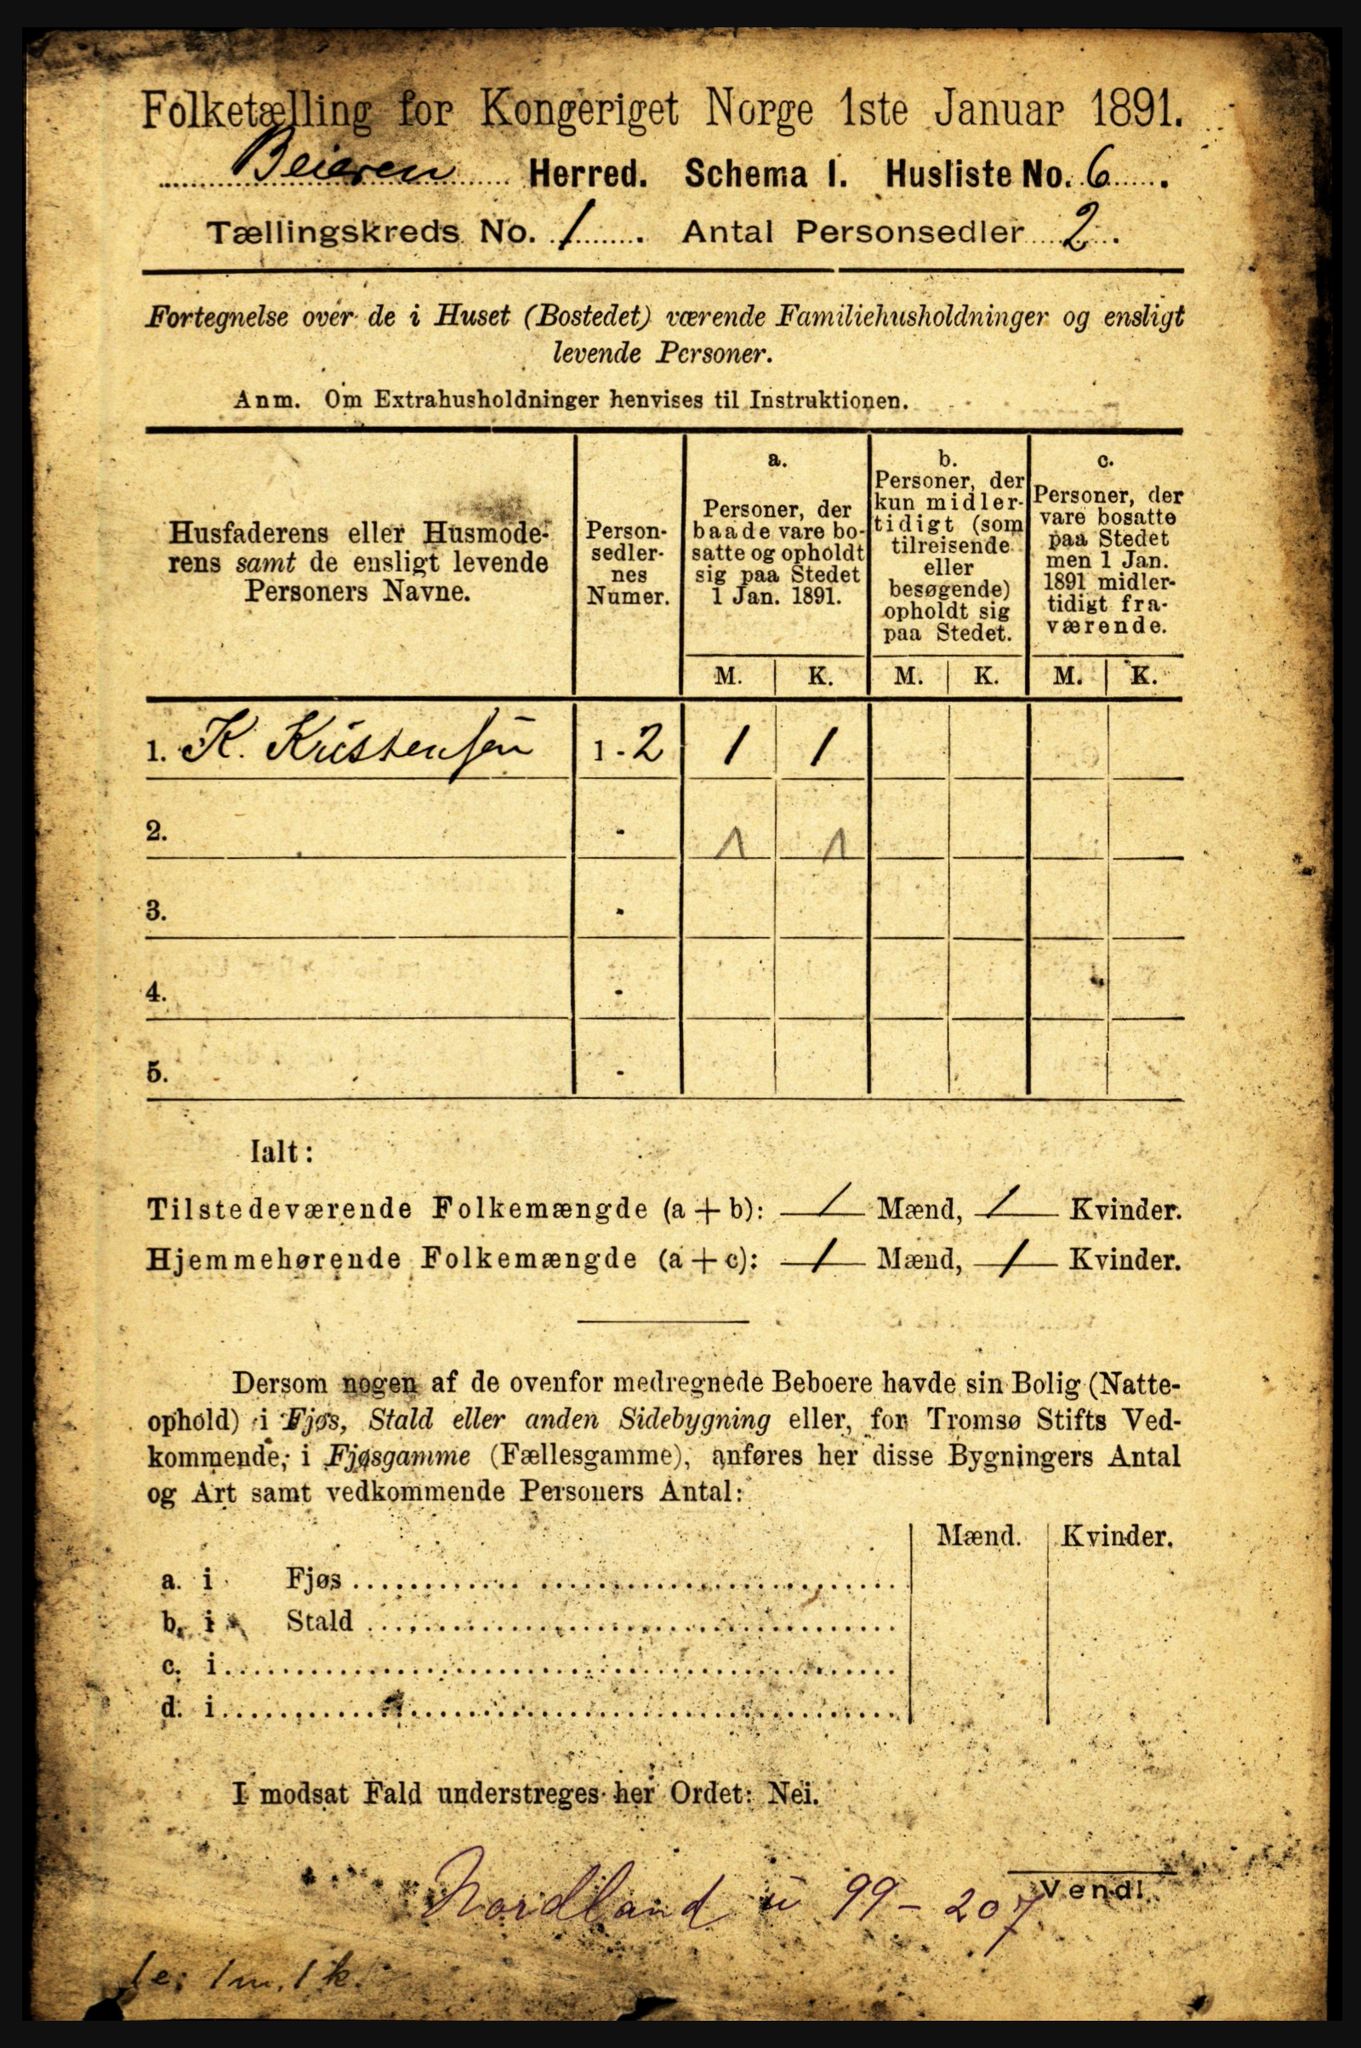 Folketælling for Kongeriget Norge 1ste Januar 1891.
Beieren Herred. Schema I. Husliste No. 6.
Tællingskreds No. 1. Antal Personsedler 2.
Fortegnelse over de i Huset (Bostedet) værende Familiehusholdninger og ensligt
levende Personer.
Anm. Om Extrahusholdninger henvises til Instruktionen.
Husfaderens eller Husmode-
rens samt de ensligt levende
Personers Navne.
Person-
sedler-
nes
Numer.
a.
Personer, der
baade vare bo-
satte og opholdt
sig paa Stedet
1 Jan. 1891.
b.
Personer, der
kun midler-
tidigt (som
tilreisende
eller
besøgende)
opholdt sig
paa Stedet.
c.
Personer, der
vare bosatte
paa Stedet
men 1 Jan.
1891 midler-
tidigt fra-
værende.
M. K. M. K. M. K.
1. K. Kristensen 1-2 1 1
2. - 1 1
3. -
4. -
5. -
Ialt:
Tilstedeværende Folkemængde (a+b): 1 Mænd, 1 Kvinder.
Hjemmehørende Folkemængde (a+c): 1 Mænd, 1 Kvinder.
Dersom nogen af de ovenfor medregnede Beboere havde sin Bolig (Natte-
ophold) i Fjøs, Stald eller anden Sidebygning eller, for Tromsø Stifts Ved-
kommende, i Fjøsgamme (Fællesgamme), anføres her disse Bygningers Antal
og Art samt vedkommende Personers Antal:
Mænd. Kvinder.
a. i Fjøs
b. i Stald
c. i
d. i
I modsat Fald understreges her Ordet: Nei.
Vend!
Nordland u 99-207
1e. 1m. 1k.